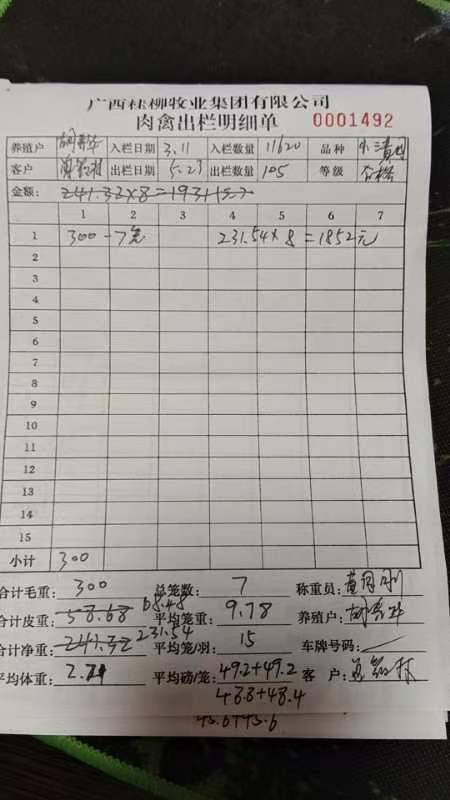 广西桂柳牧业集团有限公司
肉禽出栏明细单 0001492
养殖户 入栏日期 3.11 入栏数量 11620 品种
客户 出栏日期 5.27 出栏数量 105 等级 合格
金额: 241.32×8=1931
1 2 3 4 5 6 7
1 300 -7 231.54×8=1852元
2
3
4
5
6
7
8
9
10
11
12
13
14
15
小计 300
合计毛重: 300 总笼数: 7 称重员:
合计皮重: 58.68 68.48 平均笼重: 9.78 养殖户:
合计净重: 241.32 231.54 平均笼/羽: 15 车牌号码:
平均体重: 平均磅/笼: 49.2+49.2 客户:
48.8+48.4